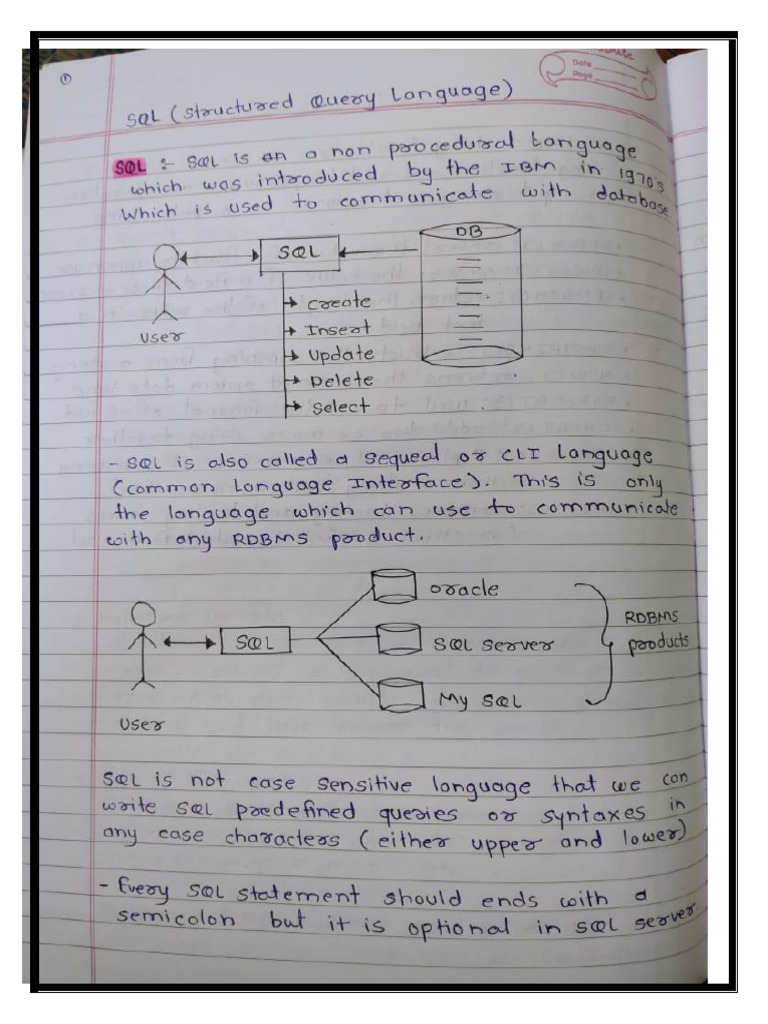 ①
Date
Page
SQL (structured Query Language)
SQL :- SQL is an a non procedural Language
which was introduced by the IBM in 1970's
Which is used to communicate with database.
DB
SQL
User
create
Insert
Update
Delete
select
- SQL is also called a sequeal or CLI Language
(common Language Interface). This is only
the language which can use to communicate
with any RDBMS product.
oracle
RDBMS
SQL
SQL Server
products
My SQL
User
SQL is not case sensitive language that we can
write SQL predefined queries or syntaxes in
any case characters (either upper and lower)
- Every SQL statement should ends with a
semicolon but it is optional in SQL server